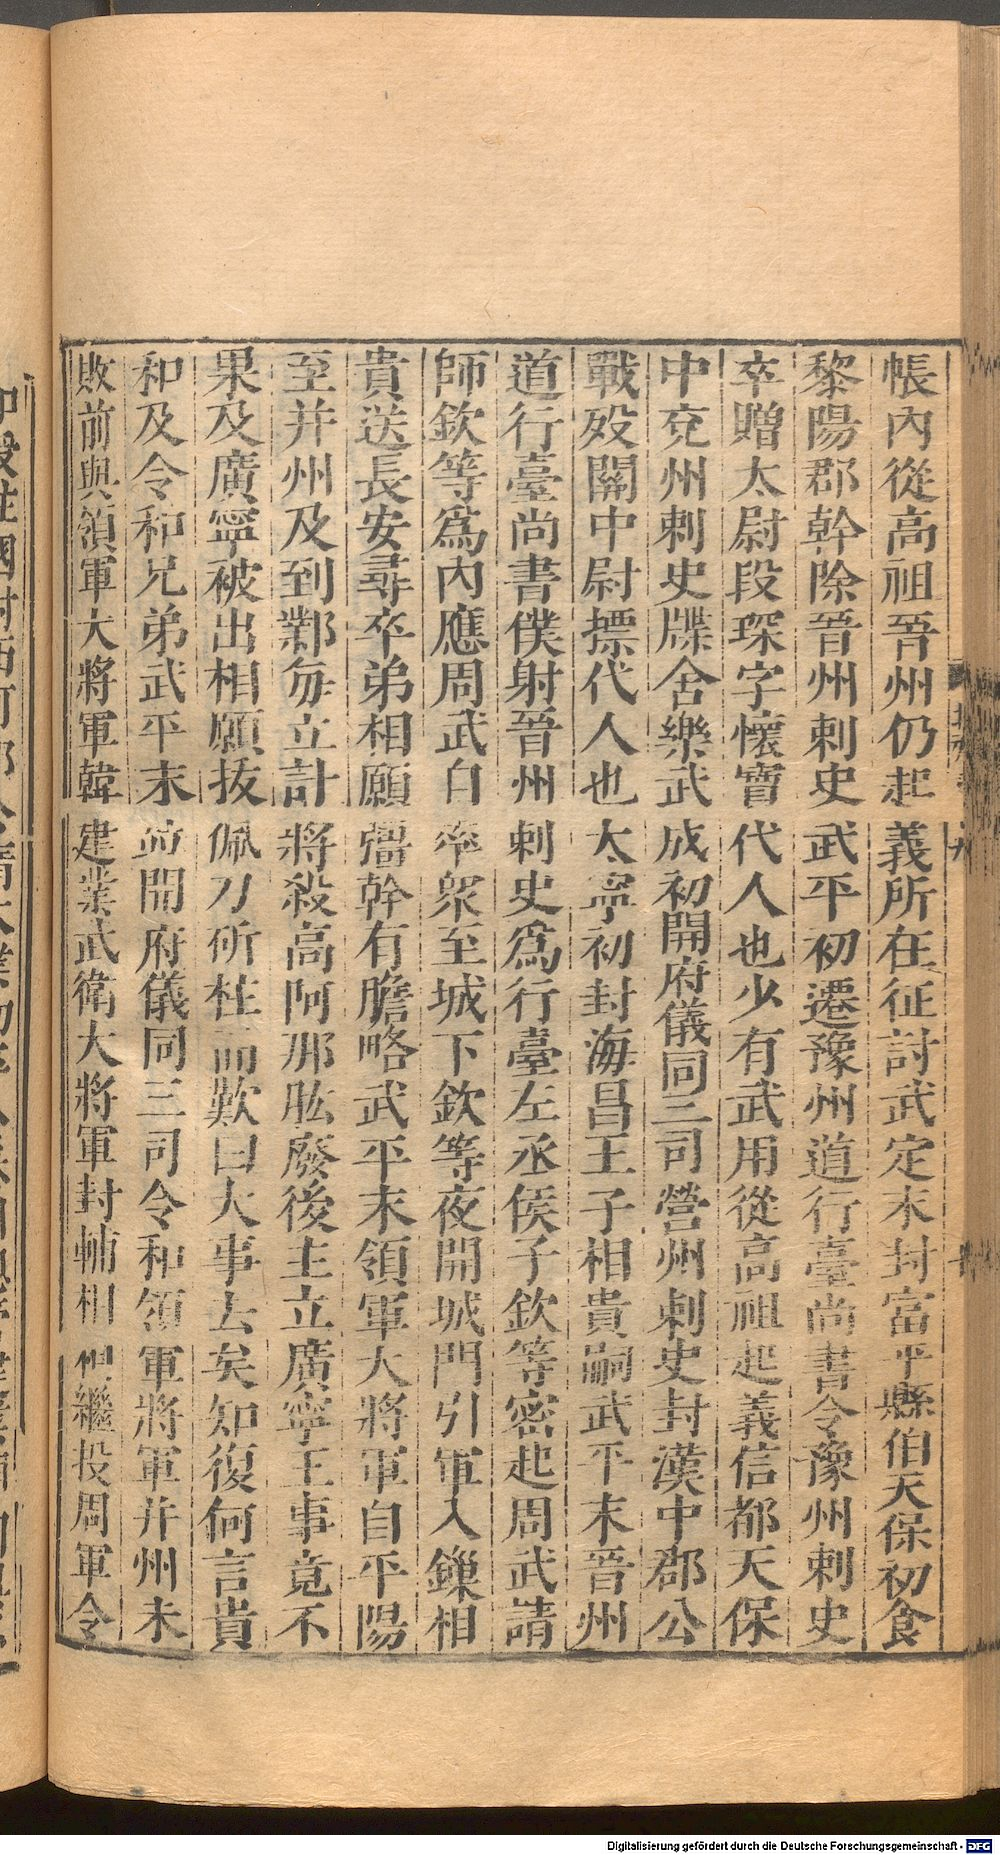 帳內從高祖晉州仍起義所在征討武定末封富平縣伯天保初食
黎陽郡幹除晉州刺史武平初遷豫州道行臺尚書令豫州刺史
卒贈太尉段琛字懷寶代人也少有武用從高祖起義信都天保
中兗州刺史牒舍樂武成初開府儀同三司營州刺史封漢中郡公
戰歿關中尉摽代人也太寧初封海昌王子相貴嗣武平末晉州
道行臺尚書僕射晉州刺史爲行臺左丞侯子欽等密起周武請
師欽等爲內應周武自率衆至城下欽等夜開城門引軍入鏁相
貴送長安尋卒弟相願彊幹有膽略武平末領軍大將軍自平陽
至并州及到鄴每立計將殺高阿那肱廢後主立廣寧王事竟不
果及廣寧被出相願拔佩刀斫柱而歎曰大事去矣知復何言貴
和及令和兄弟武平末並開府儀同三司令和領軍將軍并州未
敗前與領軍大將軍韓建業武衛大將軍封輔相相繼投周軍令
Digitalisierung gefördert durch die Deutsche Forschungsgemeinschaft - DFG